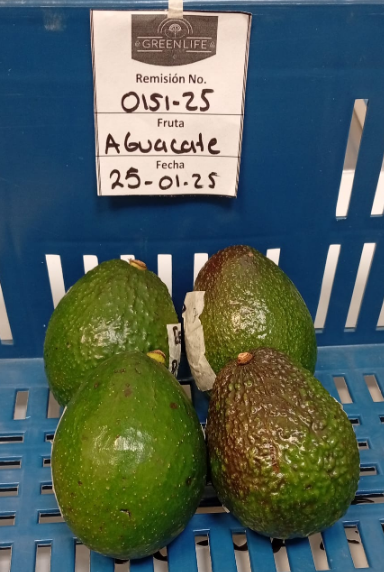 GREENLIFE
Remisión No.
0151-25
Fruta
Aguacate
Fecha
25-01-25